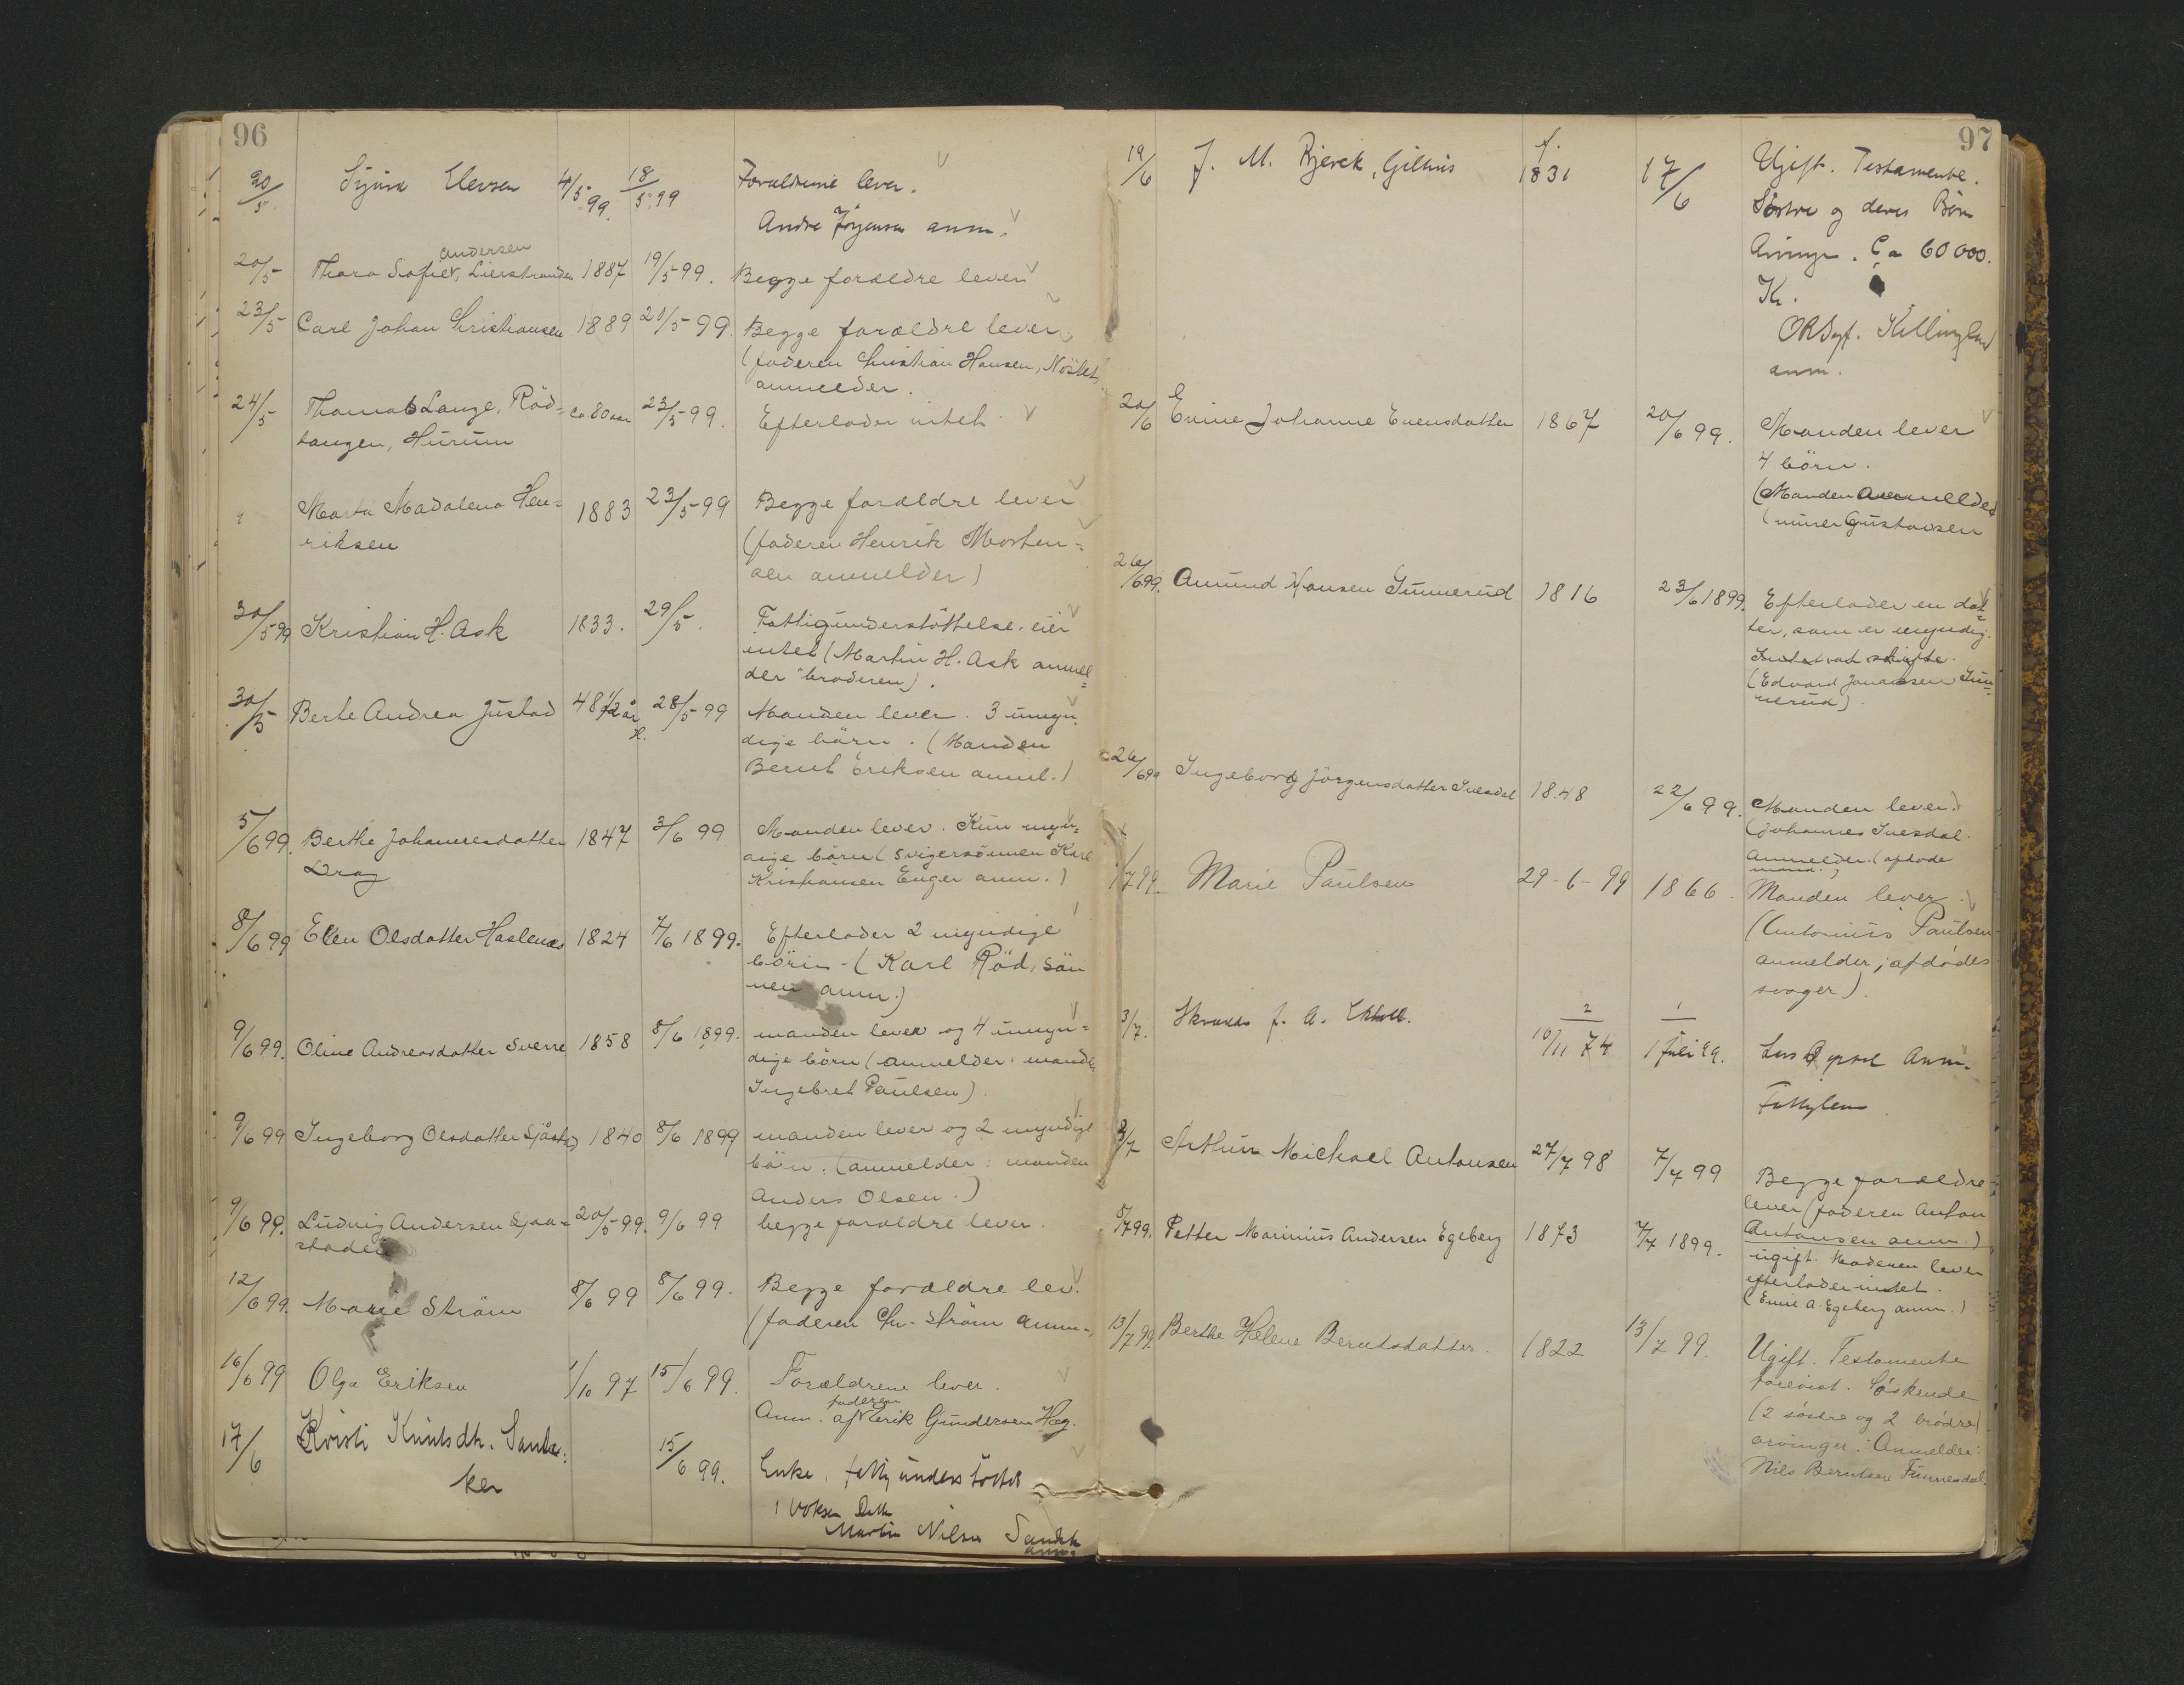 96
20/5 4/5 99. 18/5 99 Forældrene lever.
Andre Jörgensen anm.
Andersen
20/5 Thora Sofie, Lierstranden 1887 19/5 99. Begge forældre lever
23/5 Carl Johan Kristiansen 1889 21/5 99. Begge forældre lever
(faderen Christian Hansen, Nöstet,
anmelder.
24/5 Thomas Lange, Röd= ca 80 aar 23/5 99. Efterlader intet.
tangen, Hurum
" Marta Madalena Hen= 1883 23/5 99 Begge forældre lever
riksen (faderen Henrik Morten=
sen anmelder)
30/5 99 Kristian H. Ask 1833. 29/5. Fattigunderstöttelse. eier
intet (Martin H. Ask anmel=
der "broderen).
30/5 Berte Andrea Justad 48 1/2 år 28/5 99 Manden lever. 3 umyn=
dige börn. (Manden
Bernt Eriksen anml.)
5/6 99. Berthe Johannesdatter 1847 3/6 99 Manden lever. Kun myn=
Drag dige börn (svigersönnen Karl
Kristiansen Enger anm.)
8/6 99 Ellen Olsdatter Haslenæs 1824 7/6 1899. Efterlader 2 myndige
börn - (Karl Röd, sön
nen anm.)
9/6 99. Oline Andreasdatter Sverre 1858 8/6 1899. manden lever og 4 umyn=
dige börn (anmelder: manden
Ingebret Paulsen)
9/6 99 Ingeborg Olsdatter Sjåstad 1840 8/6 1899 manden lever og 2 myndige
börn. (anmelder: manden
Anders Olsen.)
9/6 99. Ludvig Andersen Sjaa= 20/5 99. 9/6 99 begge forældre lever.
staden
12/6 99. Marie Ström 8/6 99 8/6 99. Begge forældre lev.
(faderen Chr. Ström anm.)
16/6 99 Olga Eriksen 1/10 97 15/6 99. Forældrene lever.
faderen
Anm. af Erik Gundersen Hæg.
17/6 Kristi Knutsdtr. Sand= 15/6 99. Enke, fattigunderstöttet
ker 1 voksen Datter
Martin Nilsen
anm.
97
19/6 J. M. Bjerck, Gilhus f. 1831 17/6 Ugift. Testamente.
Söstre og deres Börn
Arvinger. Ca 60000.
Kr.
Killingland
anm.
20/6 Evine Johanne Evensdatter 1867 20/6 99. Manden lever
4 börn.
(Manden anmelder
(murer Gustavsen
26/6 99. Amund Hansen Gunnerud 1816 23/6 1899. Efterlader en dat
ter, som er myndig.
Intet at skifte.
(Edvard Johansen Gun=
nerud)
26/6 99 Ingeborg Jörgensdatter Ivesdal 1848 22/6 99. Manden lever.
(Johannes Ivesdal.
Anmelder. (afdöde
mand.)
1/7 99. Marie Paulsen 29-6-99 1866. Manden lever.
(Antonius Paulsen
anmelder, afdödes
svoger).
2 1
3/7. 10/11 74 1 juli 99. Anm.
Fattiglem.
8/7 Arthur Michael Antonsen 27/7 98 7/7 99 Begge forældre
lever (faderen Anton
Antonsen anm.)
8/7 99. Petter Marinius Andersen Egeberg 1873 7/7 1899. ugift. Moderen lever
efterlader intet.
(Emil A. Egeberg anm.)
13/7 99. Berthe Helene Berntsdatter. 1822 13/7 99. Ugift. Testamente
forevist. Söskende
(2 söstre og 2 brödre)
arvinger. Anmelder:
Nils Berntsen